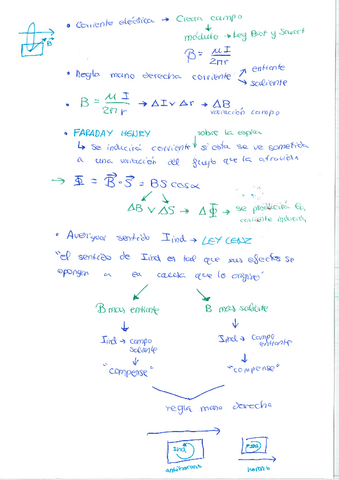 B
• Corriente eléctrica → Crean campo
módulo → Ley Biot y Savart
B = μI / 2πr
• Regla mano derecha corriente entrante
saliente
• B = μ I / 2π r → ΔI v Δr → ΔB
variación campo
• FARADAY HENRY
sobre la espira
↳ se inducirá corriente si esta se ve sometida
a una variación del flujo que la atraviesa
→ Φ = B · S = BS cos α
ΔB v ΔS → ΔΦ → se producirá la
corriente inducida
• Averiguar sentido Iind → LEY LENZ
"el sentido de Iind es tal que sus efectos se
oponen a la causa que lo origina"
B mas entrante B mas saliente
Iind → campo saliente Iind → campo entrante
"compense" "compense"
regla mano derecha
Iind
antihorario horario